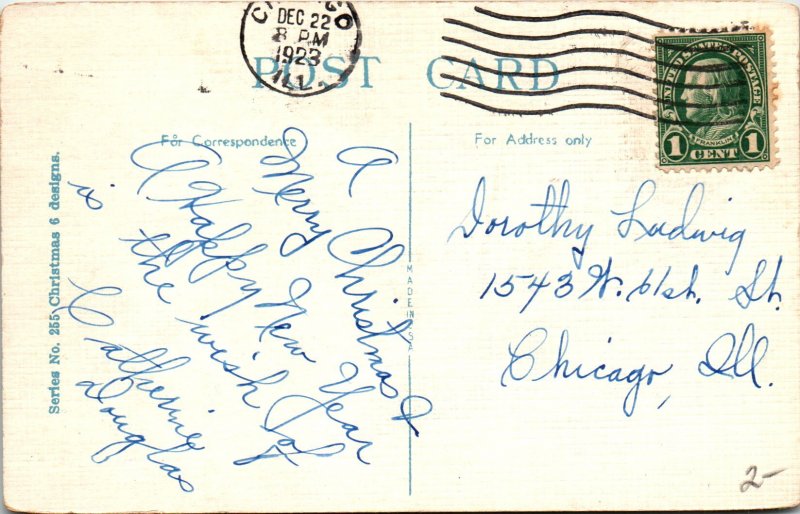 CHICAGO
DEC 22
8 PM
1923
ILL.
POST CARD
UNITED STATES POSTAGE
FRANKLIN
1 CENT 1
For Correspondence
For Address only
A
Merry Christmas &
A Happy New Year
is the wish of
Catherine
Douglas
Dorothy Ludwig
1543 W. 61st. St.
Chicago, Ill.
MADE IN USA
Series No. 255 Christmas 6 designs.
2-